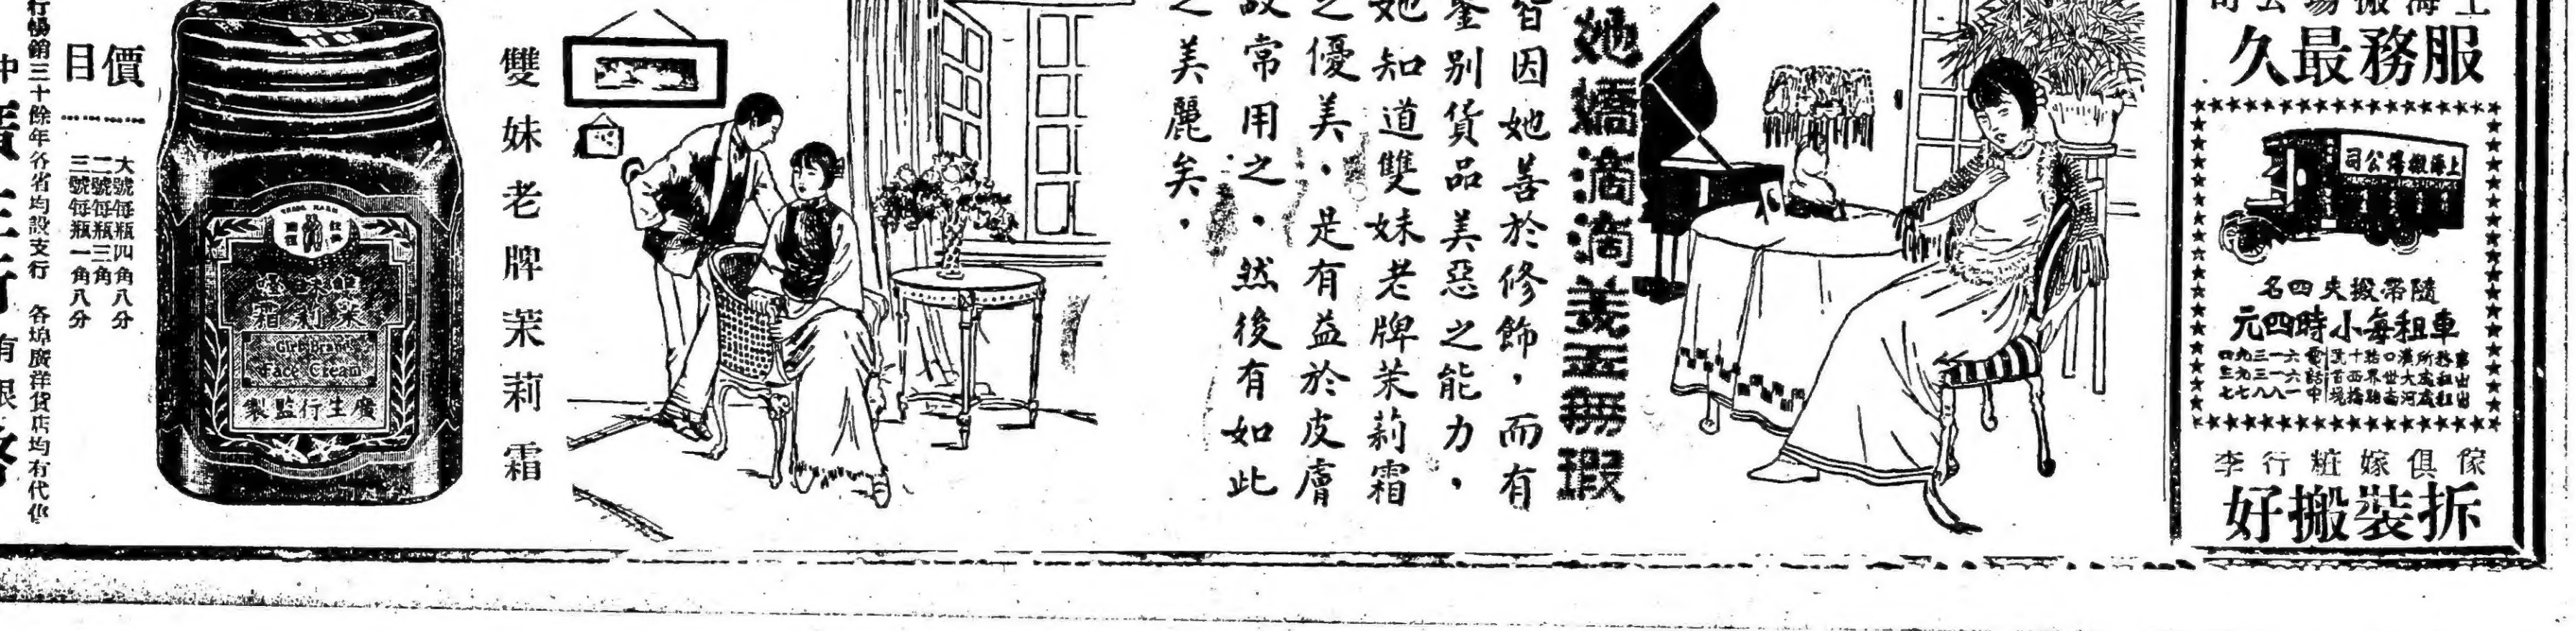 上海搬場公司
服務最久
上海搬場公司
隨帶搬夫四名
車租每小時四元
傢俱嫁粧行李
拆裝搬好
她嬌滴滴美玉無瑕
皆因她善於修飾，而有
鉴别貨品美惡之能力，
她知道雙妹老牌茉莉霜
之優美，是有益於皮膚
故常用之，然後有如此
之美麗矣，
雙妹老牌茉莉霜
TRADE MARK
雙妹嘜
茉利霜
Girl Brand
Face Cream
廣生行監製
價目
大號每瓶四角八分
二號每瓶三角
三號每瓶一角八分
行暢銷三十餘年各省均設支行 各埠廣洋貨店均有代售
廣生行有限